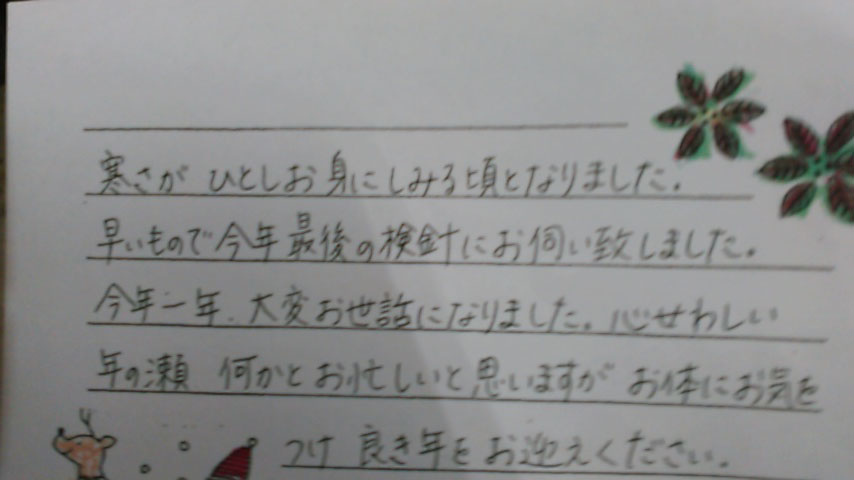 寒さが ひとしお身にしみる頃となりました。
早いもので今年最後の検針にお伺い致しました。
今年一年、大変お世話になりました。心せわしい
年の瀬 何かとお忙しいと思いますが お体にお気を
つけ 良き年をお迎えください。